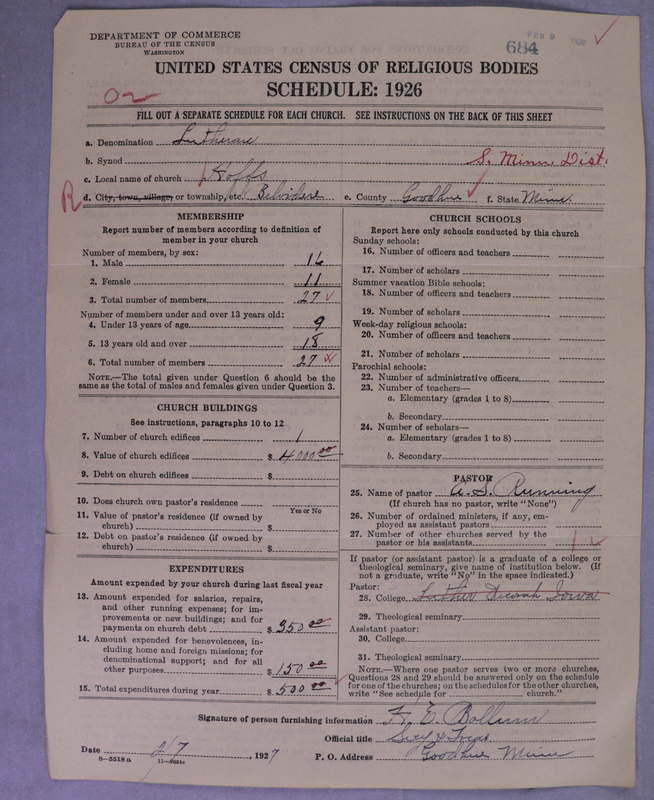 DEPARTMENT OF COMMERCE
BUREAU OF THE CENSUS
WASHINGTON
684
FEB 9
UNITED STATES CENSUS OF RELIGIOUS BODIES
SCHEDULE: 1926
FILL OUT A SEPARATE SCHEDULE FOR EACH CHURCH. SEE INSTRUCTIONS ON THE BACK OF THIS SHEET
a. Denomination Lutheran
b. Synod S. Minn. Dist.
c. Local name of church Hoffs
R d. City, town, village, or township, etc. Belvidere e. County Goodhue f. State Minn.
MEMBERSHIP
Report number of members according to definition of
member in your church
Number of members, by sex:
1. Male 16
2. Female 11
3. Total number of members 27
Number of members under and over 13 years old:
4. Under 13 years of age 9
5. 13 years old and over 18
6. Total number of members 27
NOTE.—The total given under Question 6 should be the
same as the total of males and females given under Question 3.
CHURCH BUILDINGS
See instructions, paragraphs 10 to 12
7. Number of church edifices 1
8. Value of church edifices $ 4000.00
9. Debt on church edifices $
10. Does church own pastor's residence
Yes or No
11. Value of pastor's residence (if owned by
church) $
12. Debt on pastor's residence (if owned by
church) $
EXPENDITURES
Amount expended by your church during last fiscal year
13. Amount expended for salaries, repairs,
and other running expenses; for im-
provements or new buildings; and for
payments on church debt $ 350.00
14. Amount expended for benevolences, in-
cluding home and foreign missions; for
denominational support; and for all
other purposes $ 150.00
15. Total expenditures during year $ 500.00
CHURCH SCHOOLS
Report here only schools conducted by this church
Sunday schools:
16. Number of officers and teachers
17. Number of scholars
Summer vacation Bible schools:
18. Number of officers and teachers
19. Number of scholars
Week-day religious schools:
20. Number of officers and teachers
21. Number of scholars
Parochial schools:
22. Number of administrative officers
23. Number of teachers—
a. Elementary (grades 1 to 8)
b. Secondary
24. Number of scholars—
a. Elementary (grades 1 to 8)
b. Secondary
PASTOR
25. Name of pastor A. S. Running
(If church has no pastor, write "None")
26. Number of ordained ministers, if any, em-
ployed as assistant pastors
27. Number of other churches served by the
pastor or his assistants 1
If pastor (or assistant pastor) is a graduate of a college or
theological seminary, give name of institution below. (If
not a graduate, write "No" in the space indicated.)
Pastor:
28. College Luther Decorah Iowa
29. Theological seminary
Assistant pastor:
30. College
31. Theological seminary
NOTE.—Where one pastor serves two or more churches,
Questions 28 and 29 should be answered only on the schedule
for one of the churches; on the schedules for the other churches,
write "See schedule for church."
Signature of person furnishing information H. E. Bollum
Official title
Date 2/7, 1927 P. O. Address Goodhue Minn
8-5518a 11-9084a